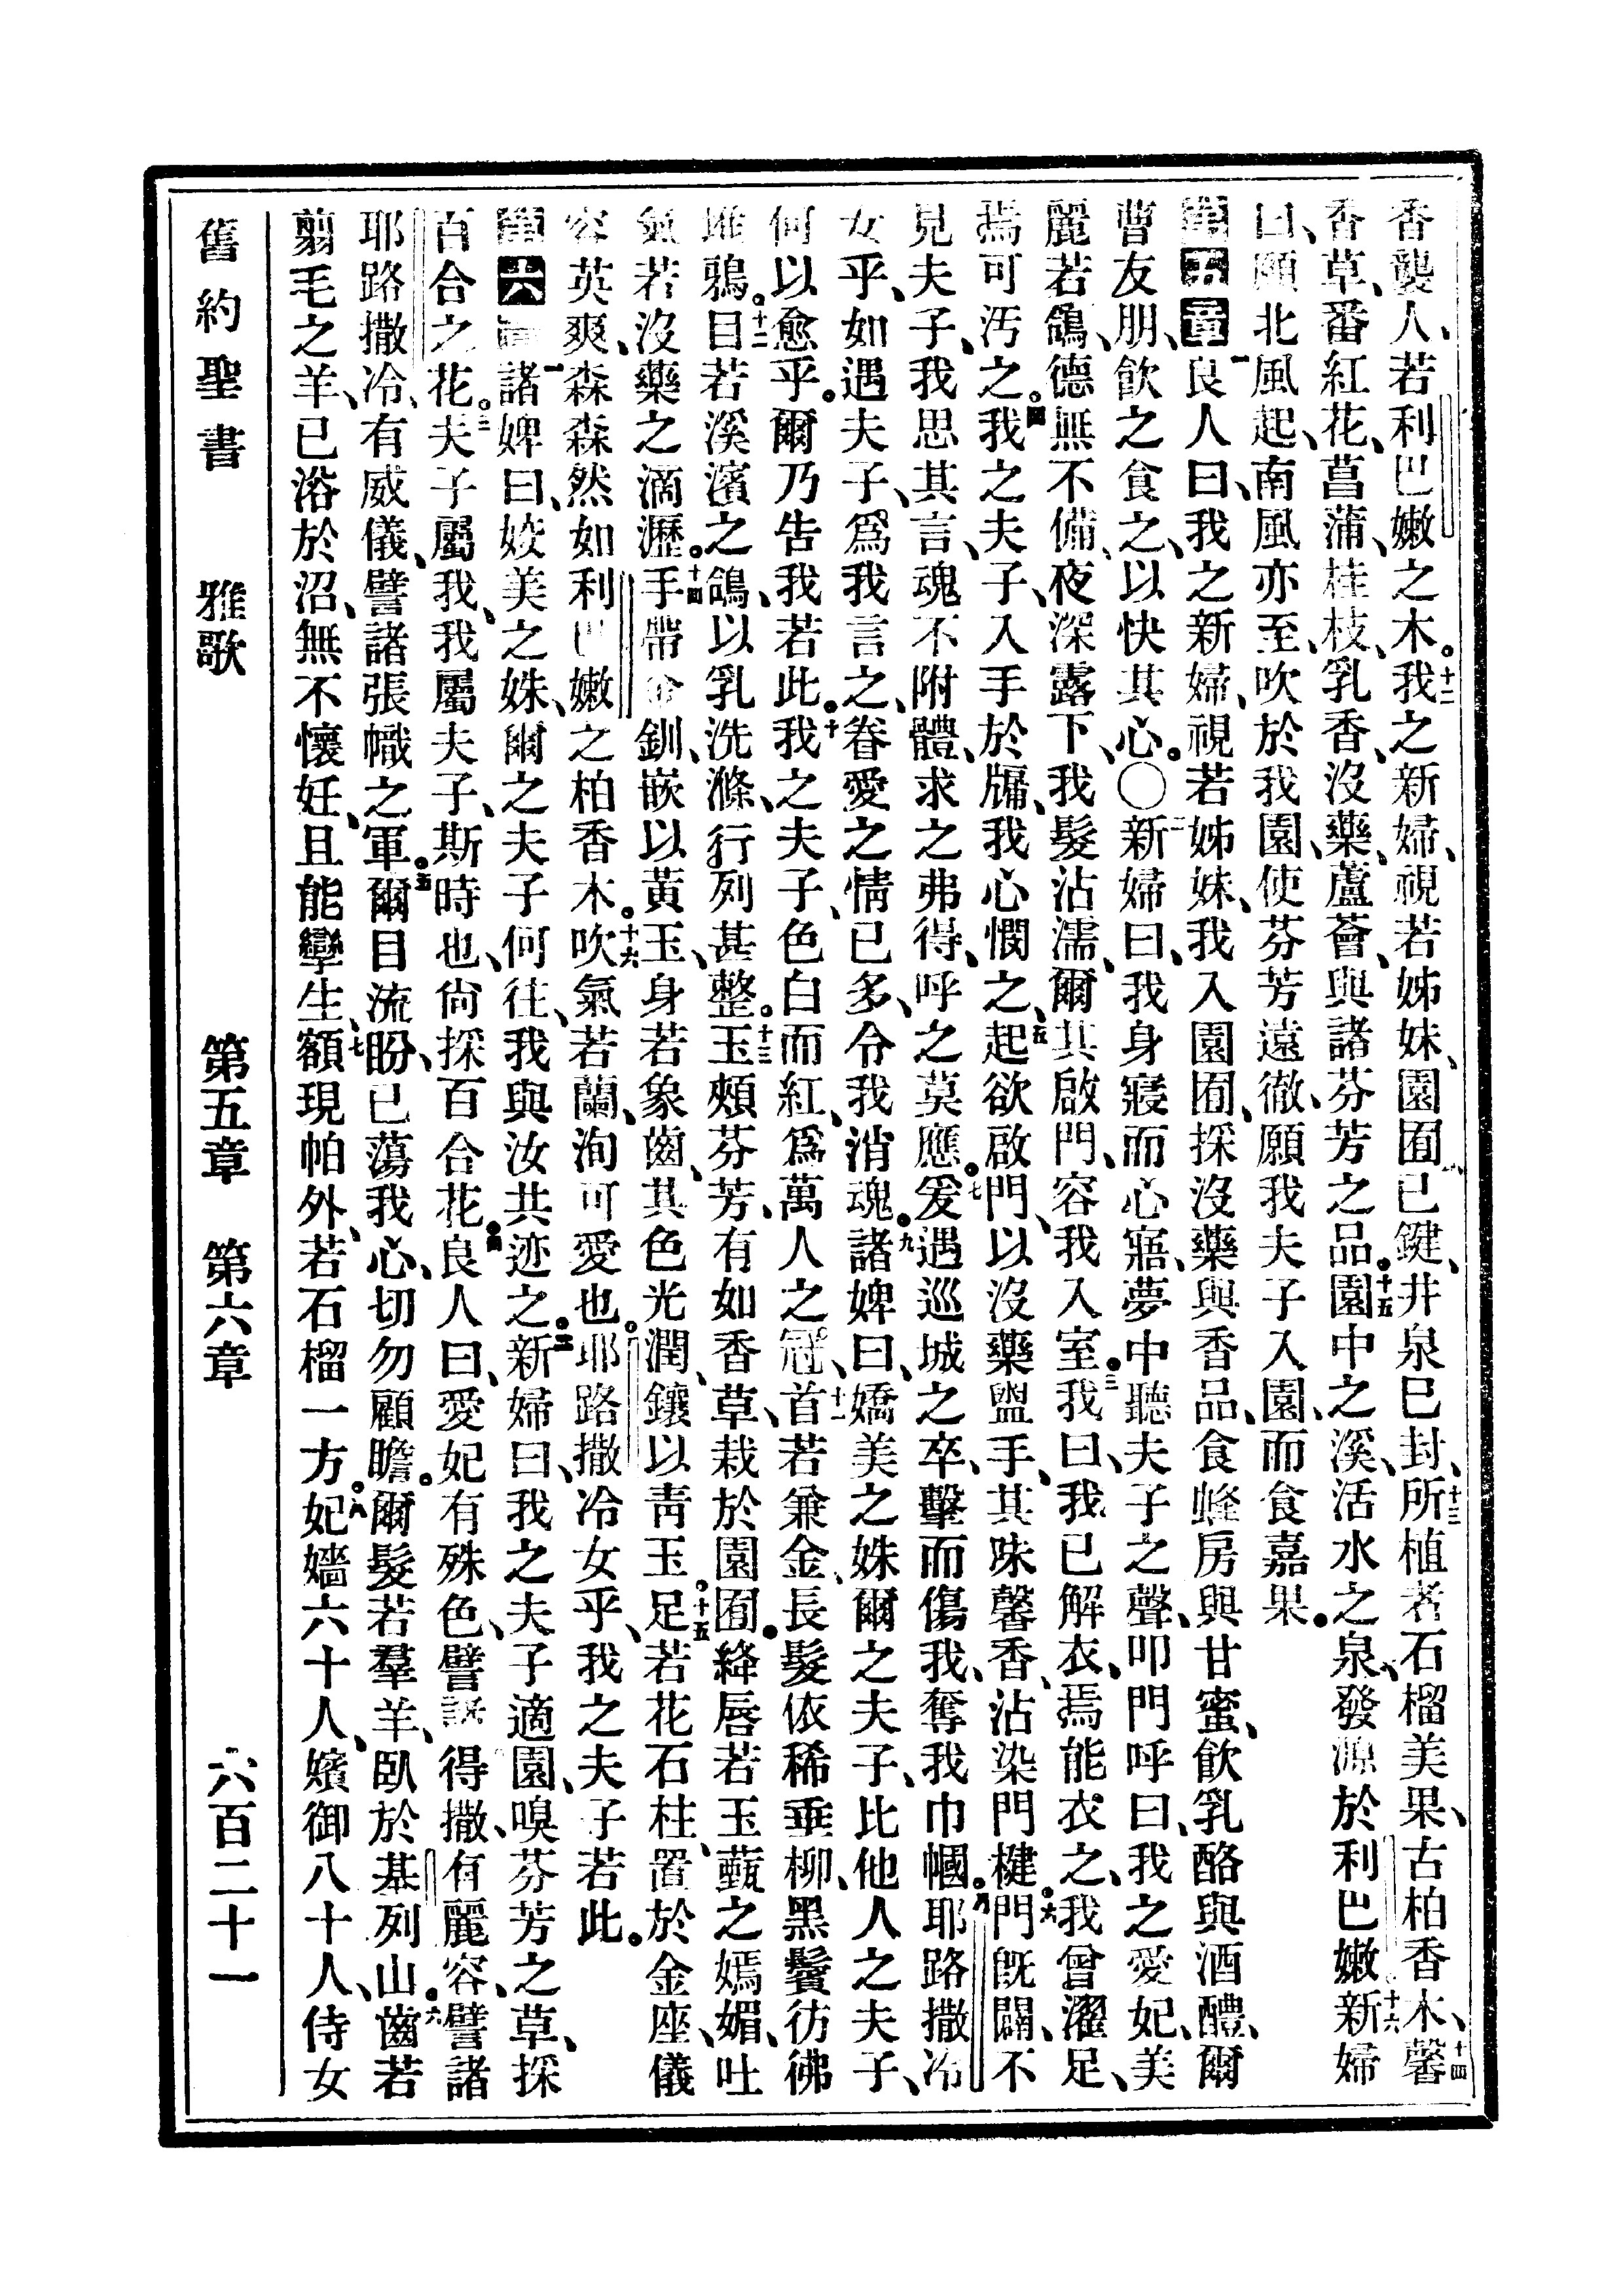 香襲人、若利巴嫩之木。十二我之新婦、視若姊妹、園囿已鍵、井泉已封、十三所植者石榴美果、古柏香木、十四馨
香草、番紅花、菖蒲、桂枝、乳香、沒藥、蘆薈、與諸芬芳之品。十五園中之溪、活水之泉、發源於利巴嫩、十六新婦
曰、願北風起、南風亦至、吹於我園、使芬芳遠徹、願我夫子入園、而食嘉果。
第五章一良人曰、我之新婦、視若姊妹、我入園囿、採沒藥與香品、食蜂房與甘蜜、飲乳酪與酒醴、爾
曹友朋、飲之食之、以快其心。〇二新婦曰、我身寢而心寤、夢中聽夫子之聲、叩門呼曰、我之愛妃、美
麗若鴿、德無不備、夜深露下、我髮沾濡、爾其啟門、容我入室。三我曰、我已解衣、焉能衣之、我曾濯足、
焉可汚之。四我之夫子、入手於牖、我心憫之、五起欲啟門、以沒藥盥手、其味馨香、沾染門楗。六門旣闢、不
見夫子、我思其言、魂不附體、求之弗得、呼之莫應。七爰遇巡城之卒、擊而傷我、奪我巾幗。八耶路撒冷
女乎、如遇夫子、爲我言之、眷愛之情已多、令我消魂。九諸婢曰、嬌美之姝、爾之夫子、比他人之夫子、
何以愈乎。爾乃告我若此。十我之夫子、色白而紅、爲萬人之冠、十一首若兼金、長髮依稀垂柳、黑鬒彷彿
堆鴉。十二目若溪濱之鴿、以乳洗滌、行列甚整。十三玉頰芬芳、有如香草、栽於園囿。絳唇若玉蕤之嫣媚、吐
氣若沒藥之滴瀝。十四手帶金釧、嵌以黃玉、身若象齒、其色光潤、鑲以靑玉。十五足若花石柱、置於金座、儀
容英爽、森森然如利巴嫩之柏香木。十六吹氣若蘭、洵可愛也。耶路撒冷女乎、我之夫子若此。
第六章一諸婢曰、姣美之姝、爾之夫子何往、我與汝共迹之。二新婦曰、我之夫子適園、嗅芬芳之草、採
百合之花。三夫子屬我、我屬夫子、斯時也、尙採百合花。四良人曰、愛妃有殊色、譬諸得撒、有麗容、譬諸
耶路撒冷、有威儀、譬諸張幟之軍。五爾目流盼、已蕩我心、切勿顧瞻。爾髮若羣羊、臥於基列山。六齒若
翦毛之羊、已浴於沼、無不懷妊、且能孿生、七額現帕外、若石榴一方。八妃嬙六十人、嬪御八十人、侍女
舊約聖書　雅歌　第五章　第六章　六百二十一